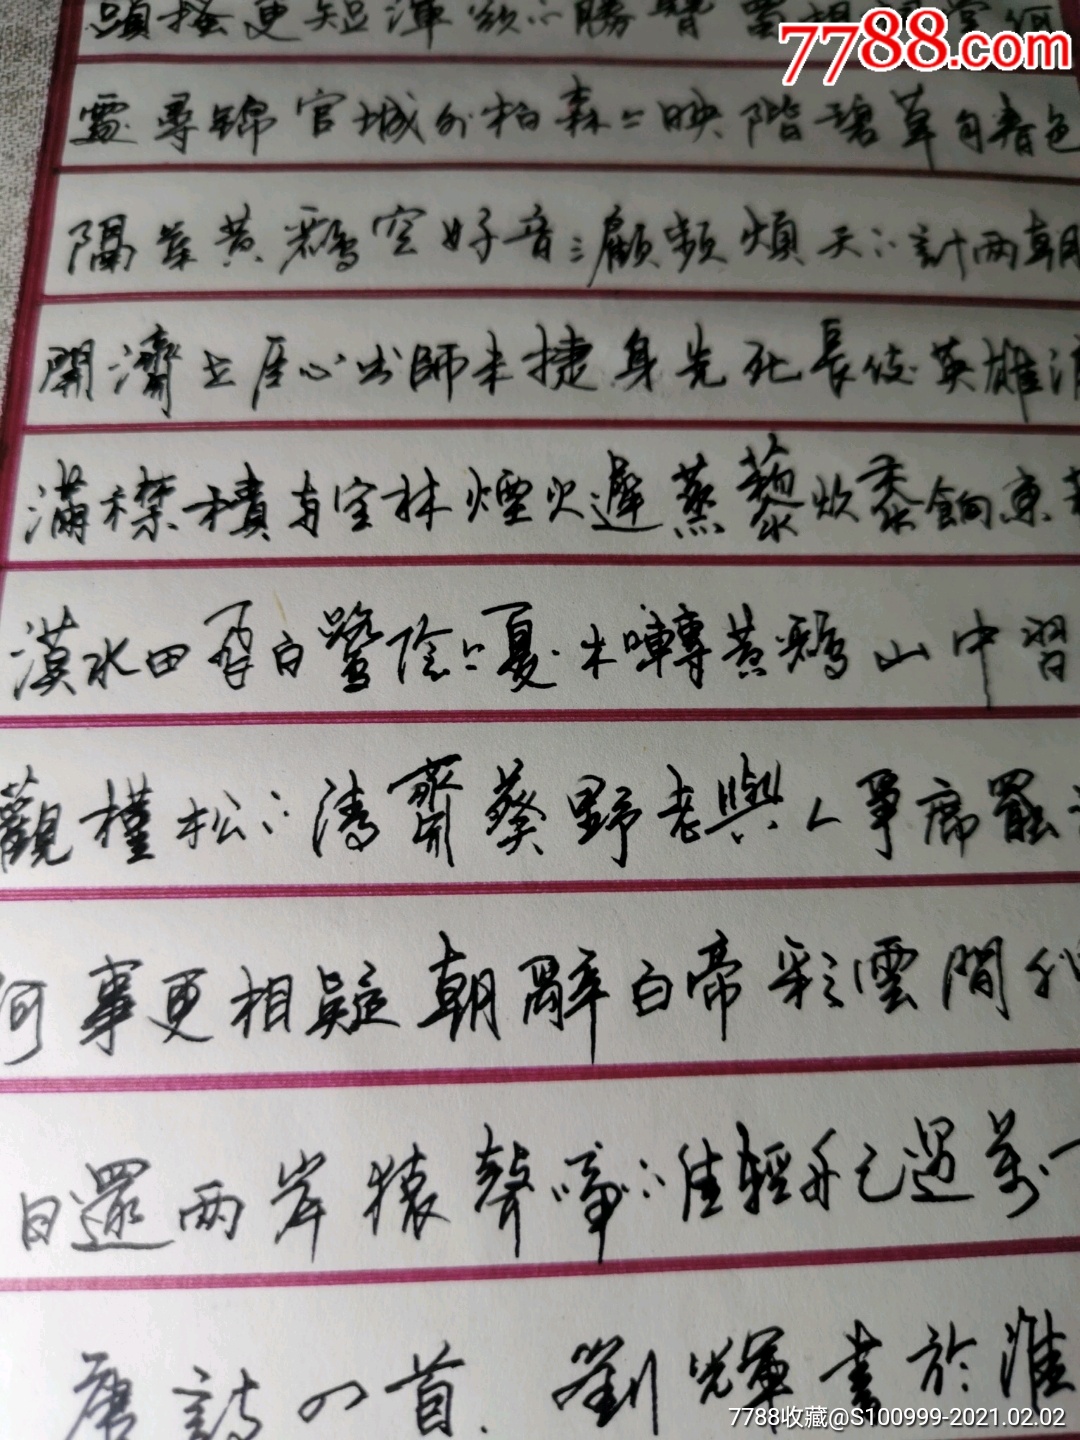 頭搔更短渾欲不勝簪丞相祠堂何
7788.com
處尋錦官城外柏森〻映階碧草自春色
隔葉黃鸝空好音三顧頻煩天下計兩朝
開濟老臣心出師未捷身先死長使英雄淚
滿襟積雨空林煙火遲蒸藜炊黍餉東菑
漠水田飛白鷺陰〻夏木囀黃鸝山中習
觀槿松下清齋葵野老與人爭席罷
何事更相疑朝辭白帝彩雲間千
日還兩岸猿聲啼不住輕舟已過萬
唐詩四首 劉輝書於淮
7788收藏@S100999-2021.02.02